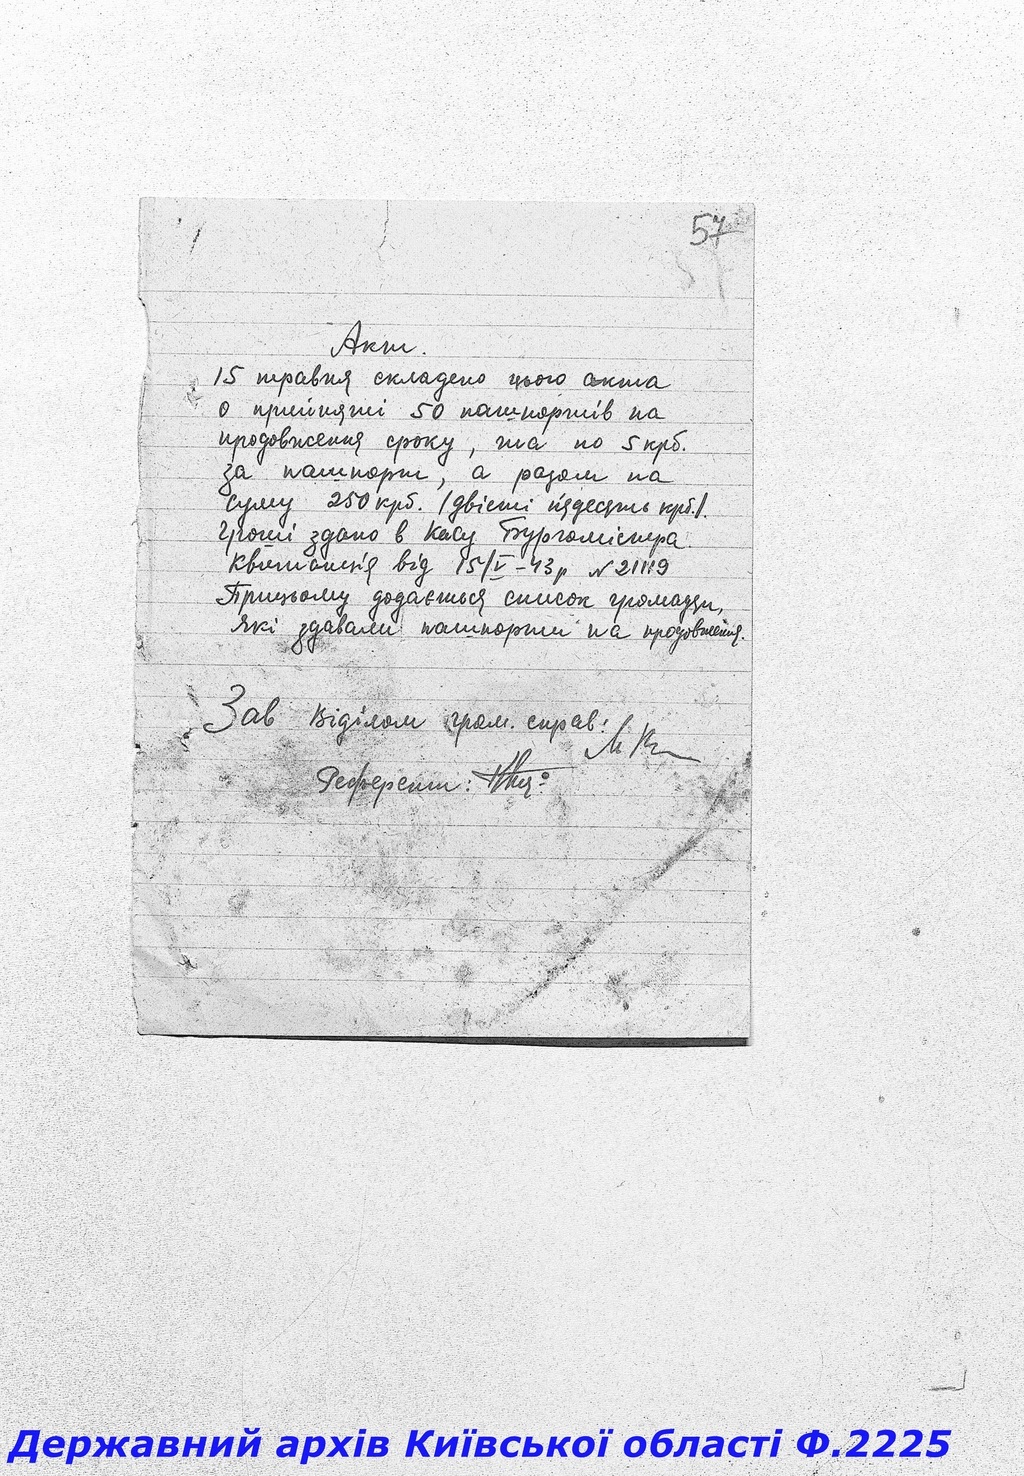 57
Акт.
15 травня складено цього акта
о прийняті 50 пашпортів на
продовження сроку, та по 5 крб.
за пашпорт, а разом на
суму 250 крб. /двісті пядесять крб./.
Гроші здано в касу Бургомістра
квитанція від 15/V-43р N 21119
Прицьому додається список громадян,
які здавали пашпорти на продовження.
Зав Відділом гром. справ:
Референт:
Державний архів Київської області Ф.2225